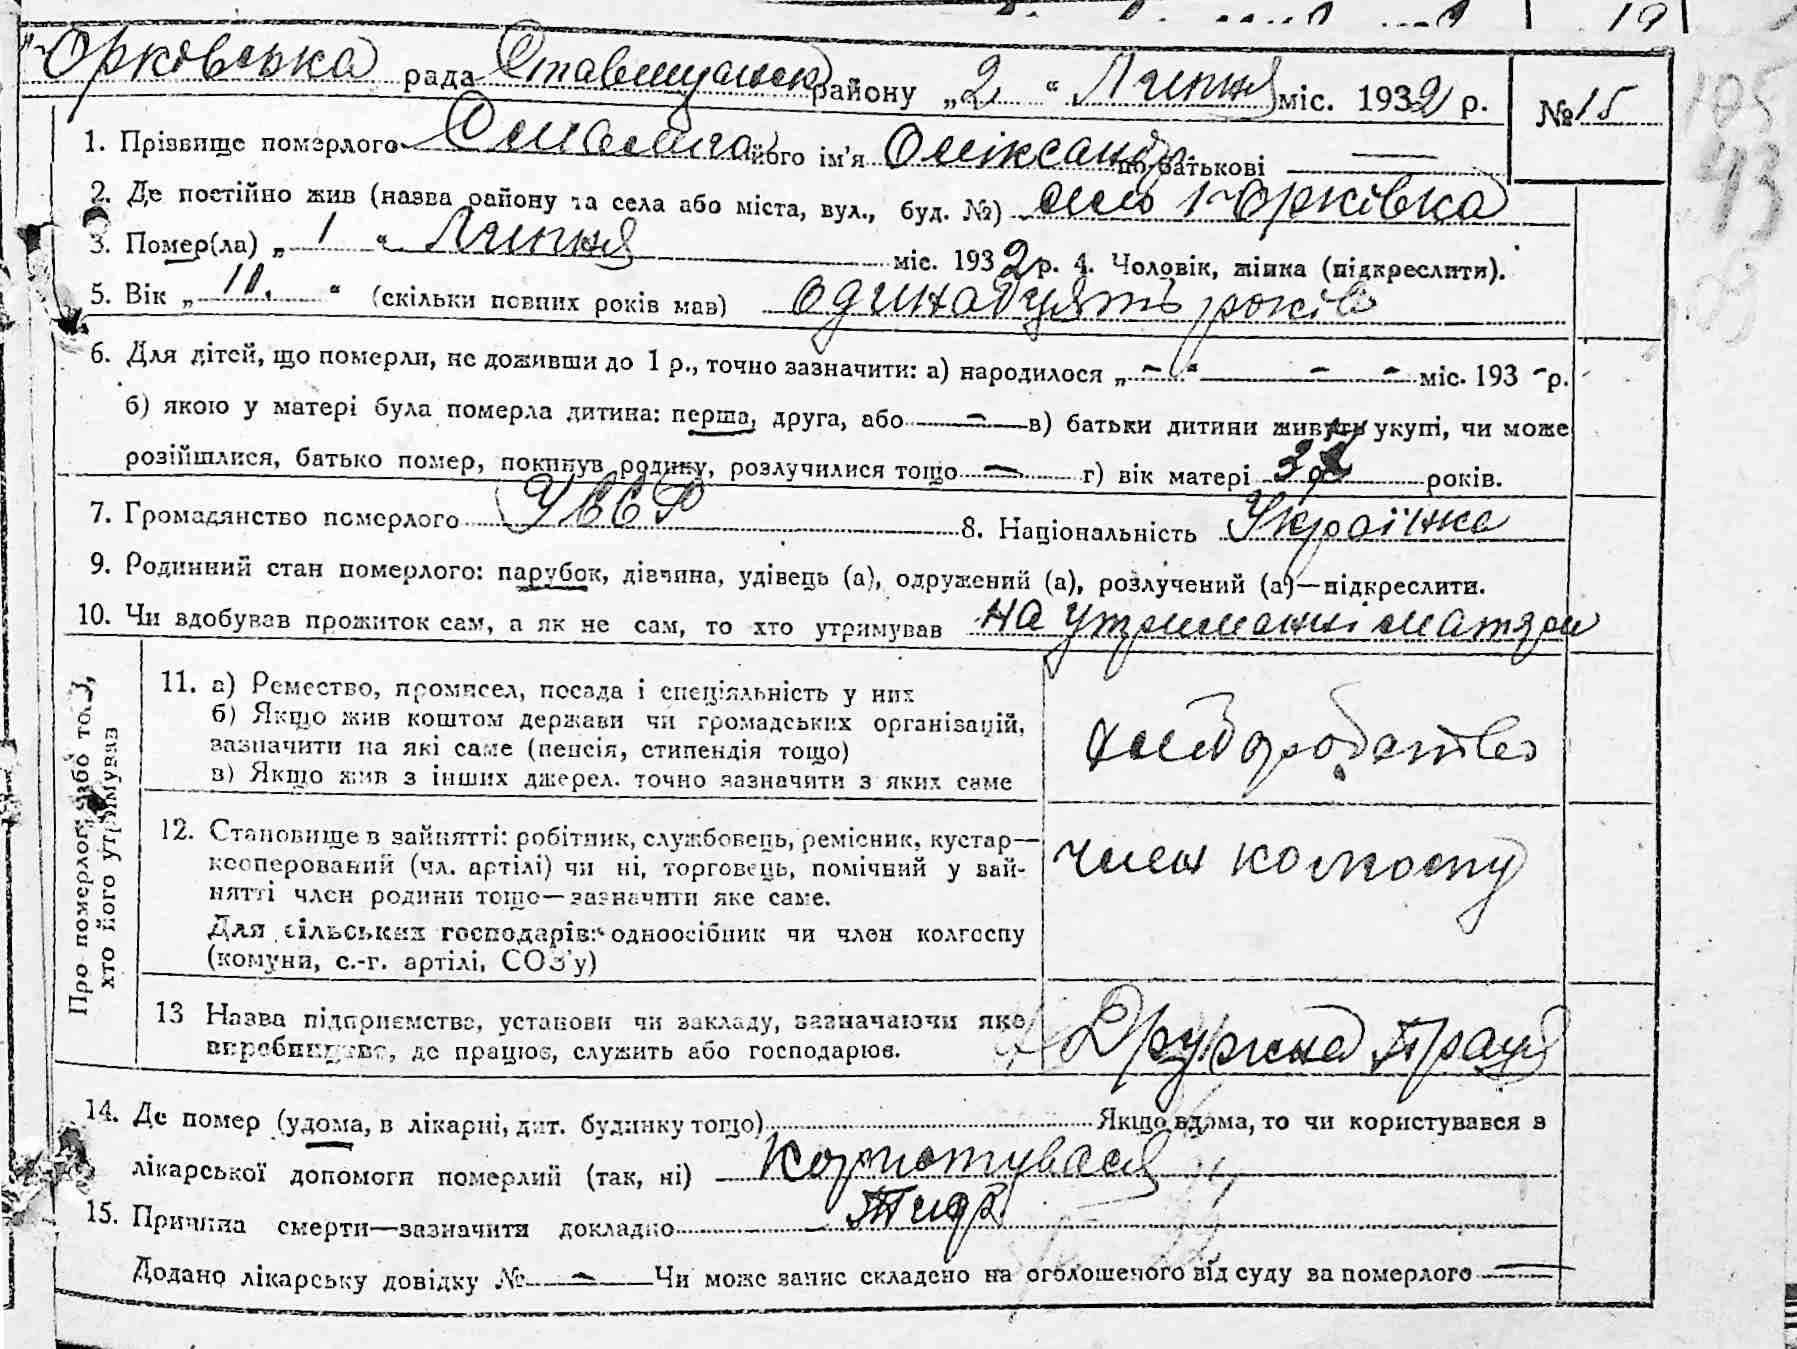 Юрківська рада Ставищанськ району „2“ Липня міс. 1932 р. №15
1. Прізвище померлого його ім'я Олександр по батькові —
2. Де постійно жив (назва району та села або міста, вул., буд. №) село Юрківка
3. Помер(ла) „1“ Липня міс. 1932 р. 4. Чоловік, жінка (підкреслити).
5. Вік „11.“ (скільки повних років мав) одинадцять років
6. Для дітей, що померли, не доживши до 1 р., точно зазначити: а) народилося „-“ - - міс. 193 - р.
б) якою у матері була померла дитина: перша, друга, або — в) батьки дитини живуть укупі, чи може
розійшлися, батько помер, покинув родину, розлучилися тощо — г) вік матері років.
7. Громадянство померлого УССР 8. Національність Українец
9. Родинний стан померлого: парубок, дівчина, удівець (а), одружений (а), розлучений (а)—підкреслити.
10. Чи здобував прожиток сам, а як не сам, то хто утримував на утриманні матери
Про померлого або того, хто його утримував
11. а) Ремество, промисел, посада і спеціяльність у них
б) Якщо жив коштом держави чи громадських організацій,
зазначити на які саме (пенсія, стипендія тощо)
в) Якщо жив з інших джерел. точно зазначити з яких саме
хліборобство
12. Становище в зайнятті: робітник, службовець, ремісник, кустар—
кооперований (чл. артілі) чи ні, торговець, помічний у зай-
нятті член родини тощо—зазначити яке саме.
Для сільських господарів: одноосібник чи член колгоспу
(комуни, с.-г. артілі, СОЗ'у)
член колгоспу
13 Назва підприємства, установи чи закладу, зазначаючи яке
виробництво, де працює, служить або господарює.
Дружна Праця
14. Де помер (удома, в лікарні, дит. будинку тощо) Якщо вдома, то чи користувався з
лікарської допомоги померлий (так, ні) користувався
15. Причина смерти—зазначити докладно Тиф
Додано лікарську довідку № — Чи може запис складено на оголошеного від суду за померлого —